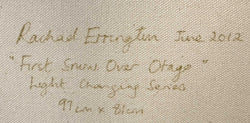 Rachael Errington June 2012
"First Snow Over Otago"
Light Changing Series
97cm x 81cm